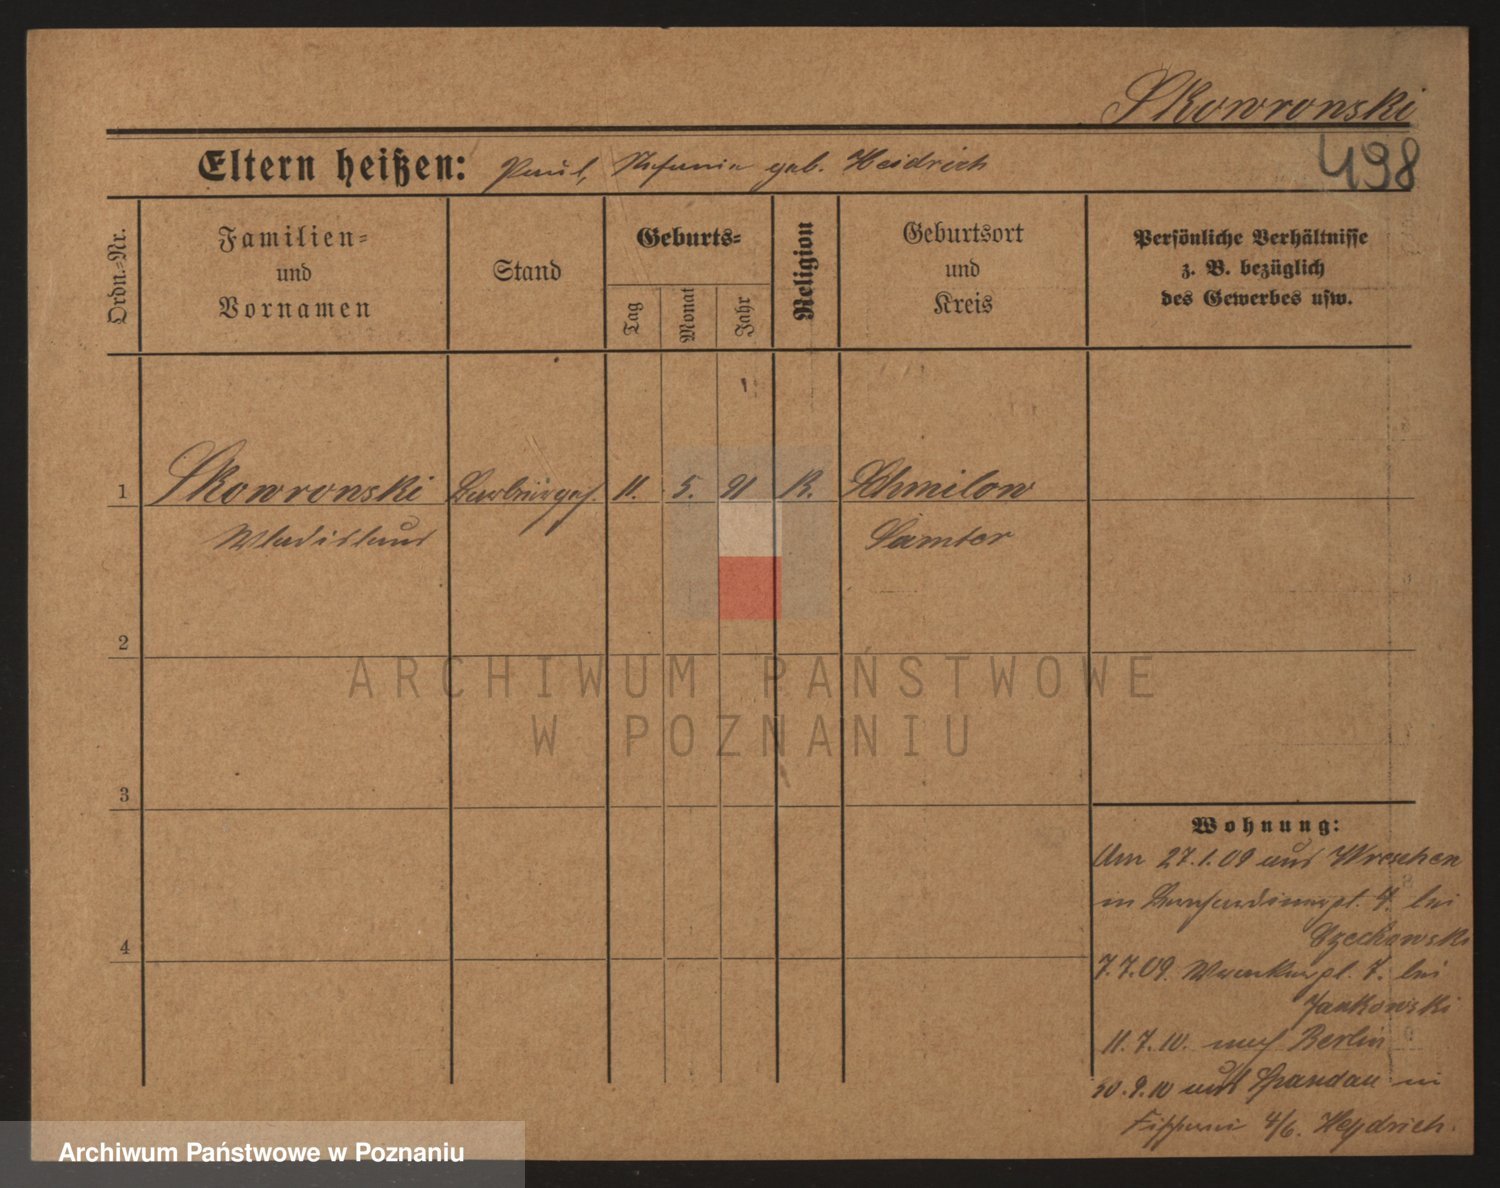 Skowronski
498
Eltern heißen: Paul, Stefania geb. Heidrich
Ordn.-Nr.
Familien-
und
Vornamen
Stand
Geburts-
Tag
Monat
Jahr
Religion
Geburtsort
und
Kreis
Persönliche Verhältnisse
z. B. bezüglich
des Gewerbes usw.
1 Skowronski 11. 5. 91 K. Schmilow
Wladislaus Samter
2
3
4
Wohnung:
Am 27.1.09 aus Wreschen
in Bernhardinerpl. 4. bei
Czechowski
7.7.09. 7. bei
Jankowski
11.7.10. nach Berlin
30.9.10 aus Spandau in
4/6. Heydrich.
ARCHIWUM PAŃSTWOWE
W POZNANIU
Archiwum Państwowe w Poznaniu